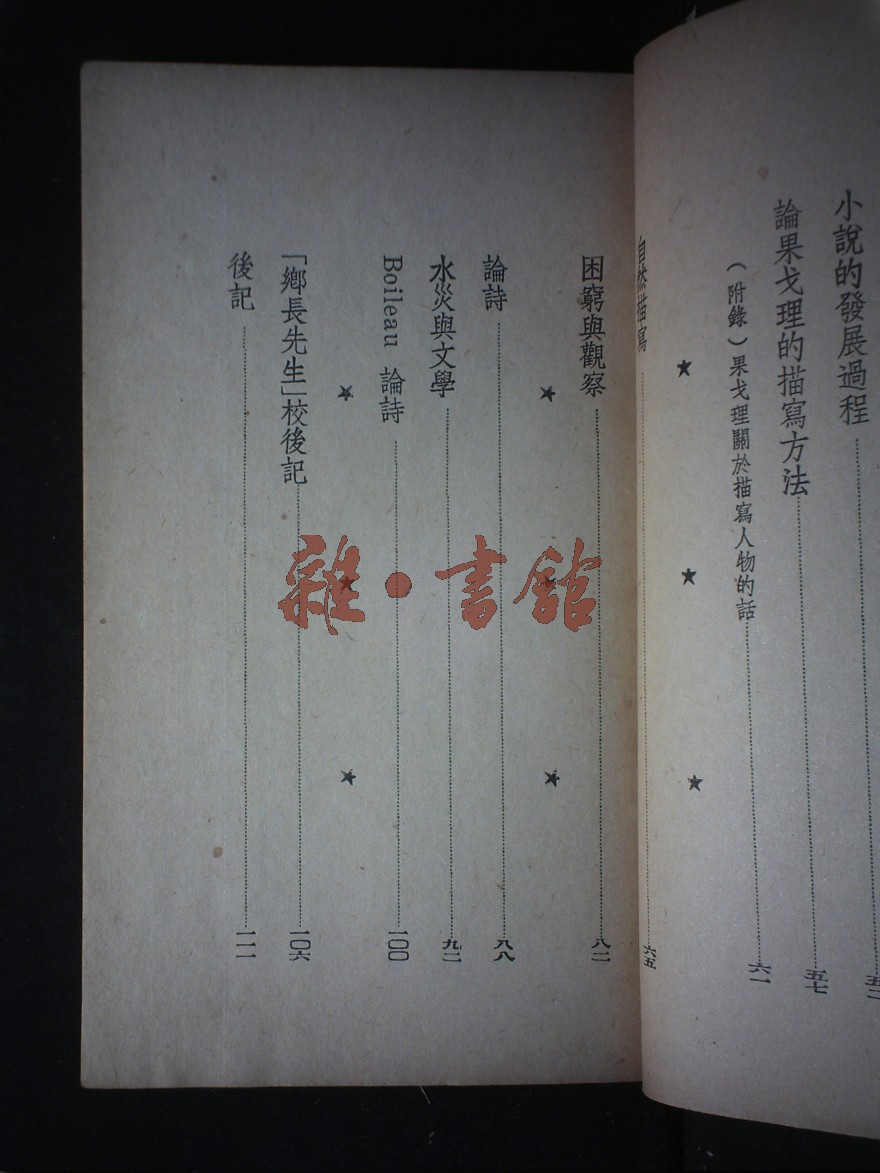 小說的發展過程
論果戈理的描寫方法 五七
（附錄）果戈理關於描寫人物的話 六一
★ ★ ★
自然描寫 六五
困窮與觀察 八二
★ ★ ★
論詩 八八
水災與文學 九二
Boileau 論詩 一〇〇
★ ★ ★
「鄉長先生」校後記 一〇六
後記 一一一
雜·書館